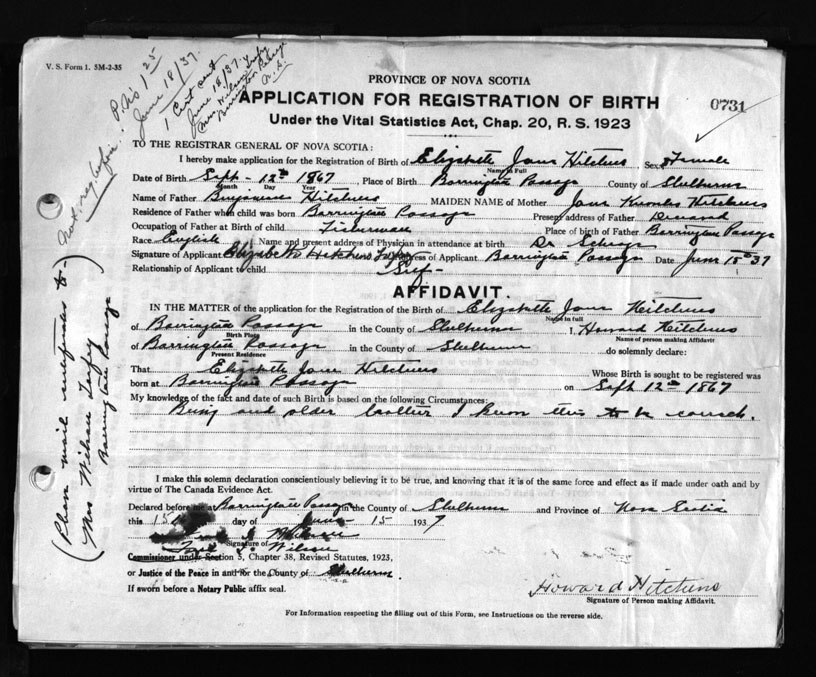 V. S. Form 1. 5M-2-35
P. No 1 25
June 18/37.
1 Cert sent
June 18/37.
Mrs Wilson
Barrington Passage
N. S.
PROVINCE OF NOVA SCOTIA
APPLICATION FOR REGISTRATION OF BIRTH
0731
Under the Vital Statistics Act, Chap. 20, R. S. 1923
TO THE REGISTRAR GENERAL OF NOVA SCOTIA:
I hereby make application for the Registration of Birth of Elizabeth Jane Hitchens Sex Female
Name in Full
Date of Birth Sept - 12th 1867, Place of Birth Barrington Passage County of Shelburne
Month Day Year
Name of Father Hitchens MAIDEN NAME of Mother Jane Hitchens
Residence of Father when child was born Barrington Passage Present address of Father Deceased
Occupation of Father at Birth of child Fisherman Place of birth of Father Barrington Passage
Race English Name and present address of Physician in attendance at birth Dr
Signature of Applicant Elizabeth Hitchens Address of Applicant Barrington Passage Date June 15th 37
Relationship of Applicant to child Self-
AFFIDAVIT.
IN THE MATTER of the application for the Registration of the Birth of Elizabeth Jane Hitchens
Name in full
of Barrington Passage in the County of Shelburne I, Howard Hitchens
Birth Place Name of person making Affidavit
of Barrington Passage in the County of Shelburne do solemnly declare:
Present Residence
That Elizabeth Jane Hitchens Whose Birth is sought to be registered was
born at Barrington Passage on Sept 12th 1867
My knowledge of the fact and date of such Birth is based on the following Circumstances:
Being and older brother I know this to be correct.
I make this solemn declaration conscientiously believing it to be true, and knowing that it is of the same force and effect as if made under oath and by
virtue of The Canada Evidence Act.
Declared before me at Barrington Passage in the County of Shelburne and Province of Nova Scotia
this 15 day of June 15 1937
Wilson
Signature of
Wilson
Commissioner under Section 5, Chapter 38, Revised Statutes, 1923,
or Justice of the Peace in and for the County of Shelburne
If sworn before a Notary Public affix seal.
Howard Hitchens
Signature of Person making Affidavit.
For Information respecting the filling out of this Form, see Instructions on the reverse side.
(Please mail certificates to -
Mrs Wilson
Barrington Passage)
Not reg before.